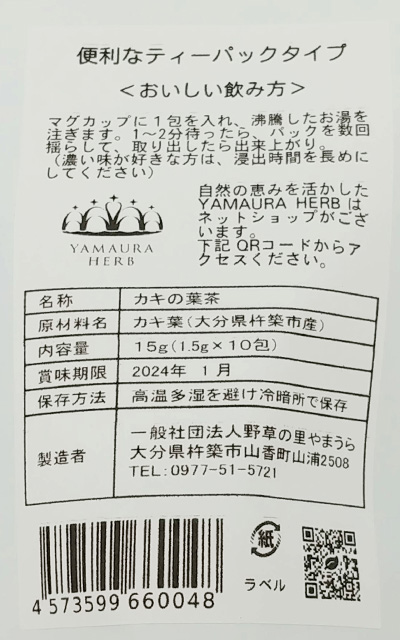 便利なティーパックタイプ
＜おいしい飲み方＞
マグカップに１包を入れ、沸騰したお湯を
注ぎます。1～2分待ったら、パックを数回
揺らして、取り出したら出来上がり。
（濃い味が好きな方は、浸出時間を長めに
してください）
自然の恵みを活かした
YAMAURA HERB は
ネットショップがござ
います。
下記 QRコードからア
クセスください。
YAMAURA
HERB
名称 カキの葉茶
原材料名 カキ葉（大分県杵築市産）
内容量 15g(1.5g×10包)
賞味期限 2024年 1月
保存方法 高温多湿を避け冷暗所で保存
製造者 一般社団法人野草の里やまうら
大分県杵築市山香町山浦2508
TEL:0977-51-5721
紙
ラベル
4 573599 660048